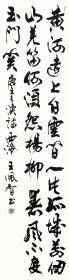 黄河远上白云间一片孤城万仞
山羌笛何须怨杨柳春风不度
玉门关